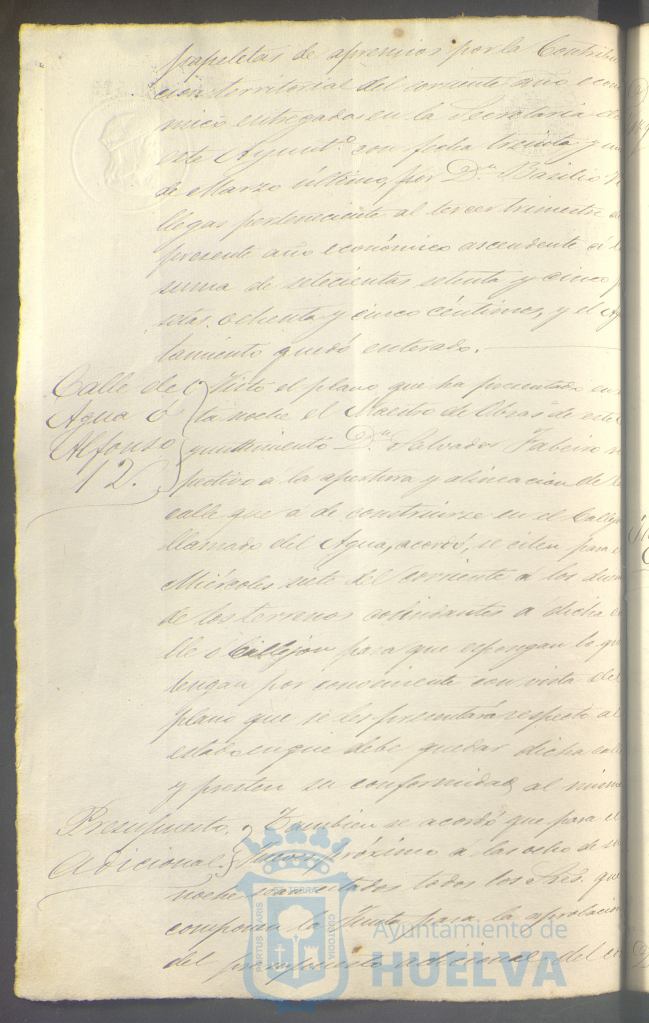 papeletas de apremios por la Contribu
cion territorial del corriente año econo
mico entregadas en la Secretaria de
este Ayuntº con fecha treinta y uno
de Marzo último, por Dn Basilio Vi
llegas perteneciente al tercer trimestre del
presente año económico ascendente á la
suma de setecientas setenta y cinco pe
setas ochenta y cinco céntimos, y el Ayun
tamiento quedó enterado.
Calle de
Agua ó
Alfonso
12.
Visto el plano que ha presentado en es
ta noche el Maestro de Obras de este A
yuntamiento Dn Salvador res
pectivo a la apertura y alineacion de la
calle que á de construirse en el Callejon
llamado del Agua, acordó, se citen para el
Miércoles siete del corriente á los dueños
de los terrenos colindantes a dicha ca
lle ó Callejon para que espongan lo que
tengan por conveniente con vista del
plano que se les presentará respecto al
estado en que debe quedar dicha calle
y presten su conformidad al mismo
Presupuesto
Adicional.
Tambien se acordó que para el
próximo á las ocho de su
noche sean citados todos los Sres. que
componen la Junta para la aprobacion
del presupuesto adicional del co
PORTUS MARIS
ET TERRAE
CUSTODIA
Ayuntamiento de
HUELVA